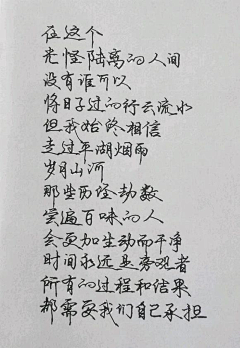 在这个
光怪陆离的人间
没有谁可以
将日子过的行云流水
但我始终相信
走过平湖烟雨
岁月山河
那些历经劫数
尝遍百味的人
会更加生动而干净
时间永远是旁观者
所有的过程和结果
都需要我们自己承担